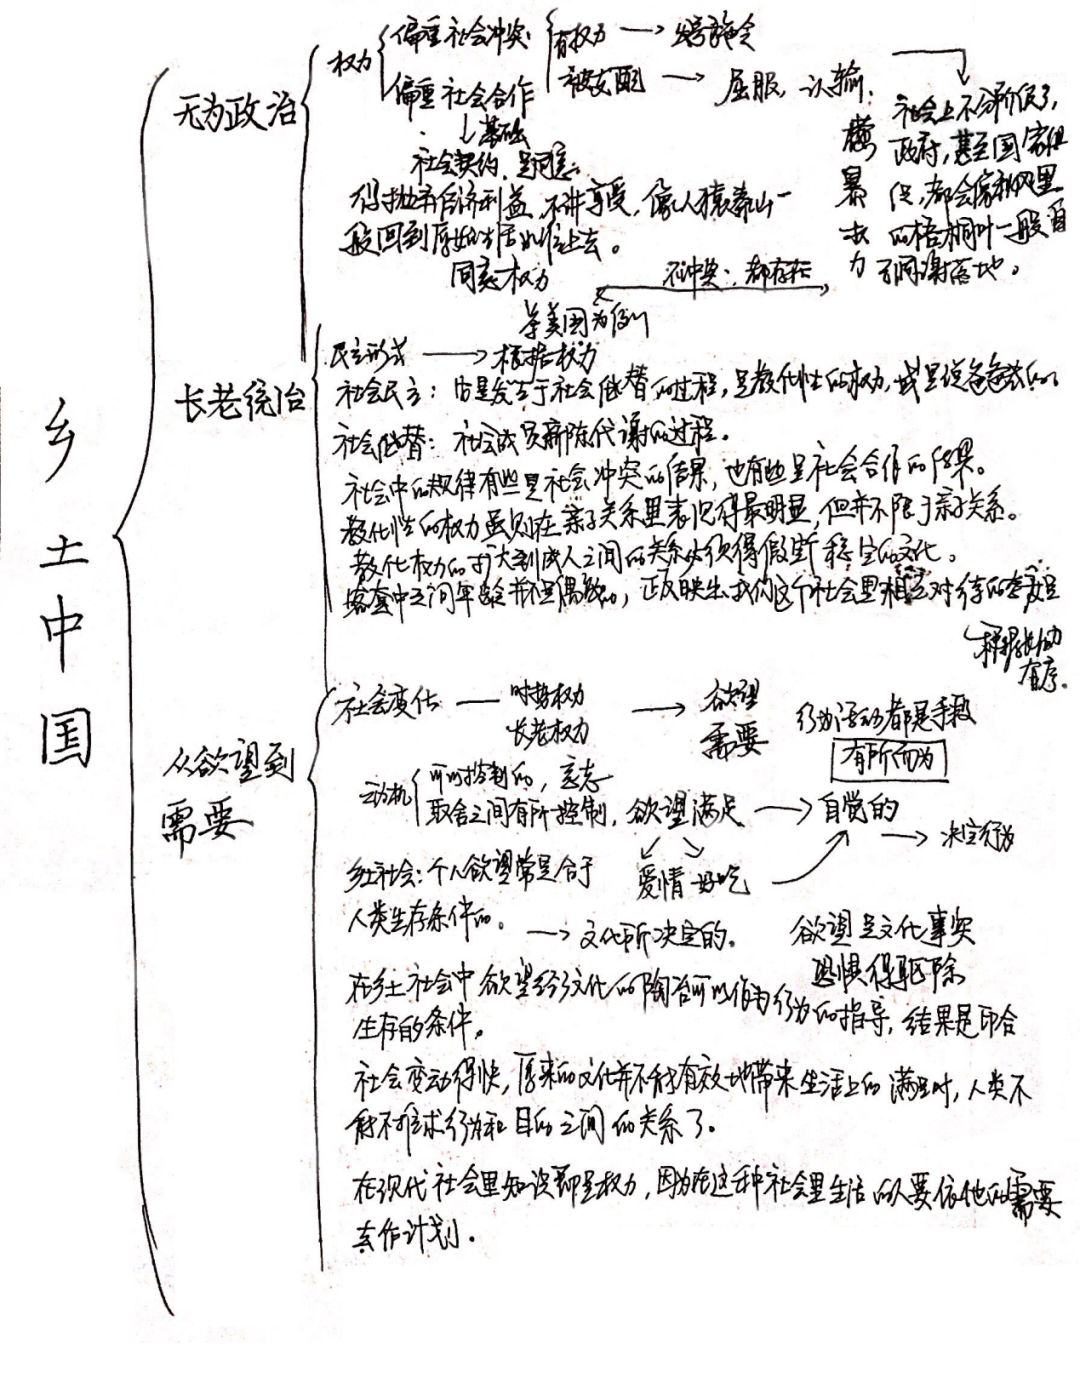 乡土中国
无为政治
权力
偏重社会冲突:
有权力 → 发号施令
被支配 → 屈服、认输.
横暴权力
社会上不分阶级了,
政府,甚至国家组
织,都会像秋风里
的梧桐叶一般自
动凋谢落地。
偏重社会合作
↓基础
社会契约、是同意:
得抛弃经济利益,不讲享受,像人猿泰山一
般回到原始生活水准上去。
同意权力
不冲突:都存在
举美国为例
长老统治
民主形式 → 根据权力
社会民主:它是发生于社会继替的过程,是教化性的权力,或是说爸爸式的
社会继替:社会成员新陈代谢的过程。
社会中的规律有些是社会冲突的结果,也有些是社会合作的结果。
教化性的权力虽则在亲子关系里表现得最明显,但并不限于亲子关系。
教化权力的扩大到成人之间的关系必须得假定稳定的文化。
客套中互问年龄并不是偶然的,正反映出我们这个社会里相互对待的态度是
根据长幼
有序.
从欲望到
需要
社会变化 — 时势权力
长老权力
→ 欲望
需要
行为活动都是手段
有所而为
动机
可以控制的,意志
取舍之间有所控制,欲望满足 → 自觉的
→ 决定行为
爱情 好吃
乡土社会:个人欲望常是合于
人类生存条件的。
→ 文化所决定的.
欲望是文化事实
在乡土社会中欲望经了文化的陶冶可以作为行为的指导,结果是印合
生存的条件。
社会变动得快,原来的文化并不能有效地带来生活上的满足时,人类不
能不推求行为和目的之间的关系了。
在现代社会里知识即是权力,因为在这种社会里生活的人要依他的需要
去作计划.